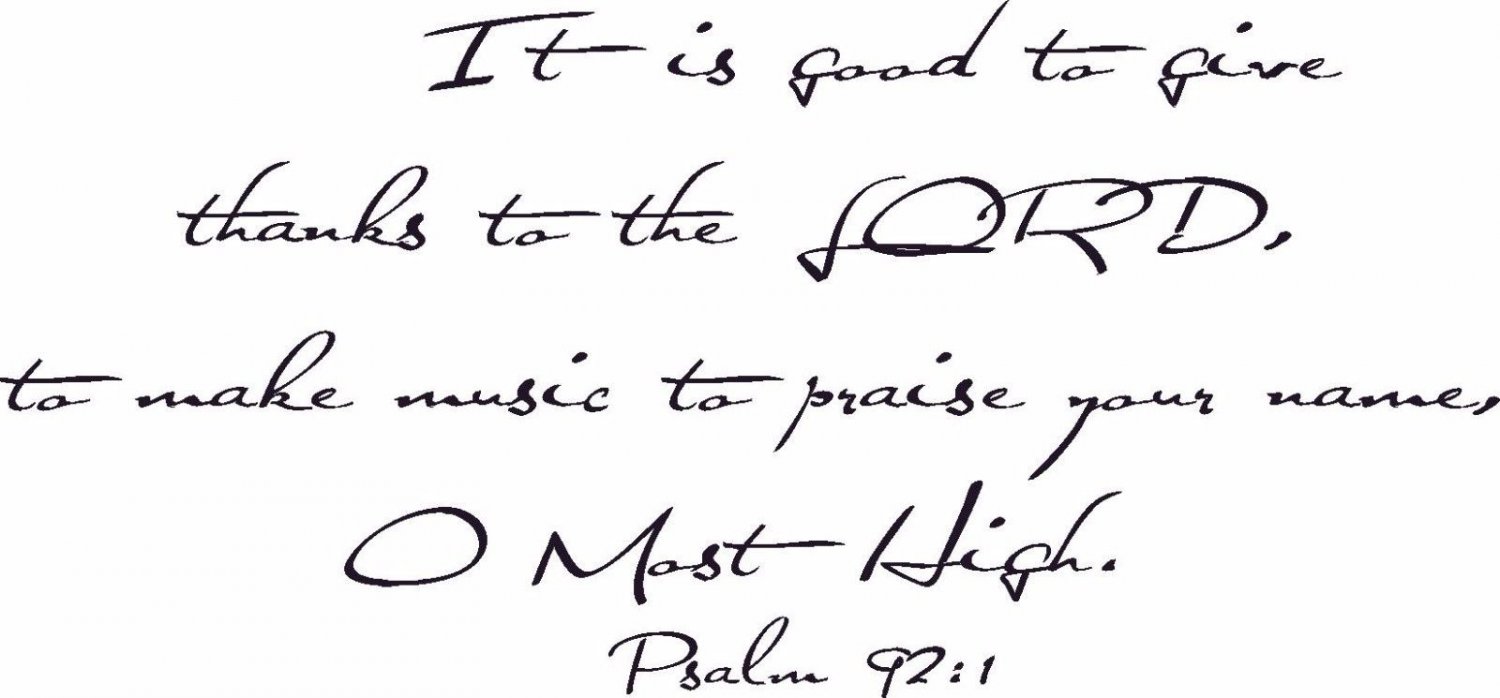 It is good to give
thanks to the LORD,
to make music to praise your name,
O Most High.
Psalm 92:1